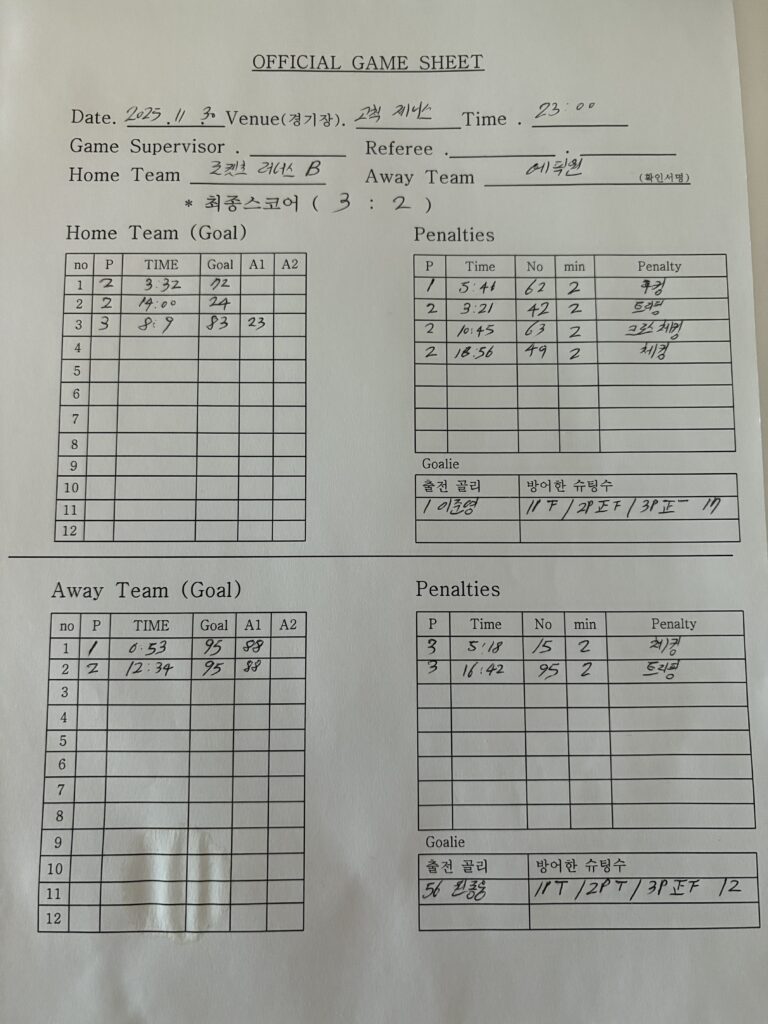 OFFICIAL GAME SHEET
Date. 2025. 11. 30 Venue(경기장). 고척 제니스 Time . 23:00
Game Supervisor . Referee . .
Home Team 로켓츠 러너스 B Away Team 에픽원 (확인서명)
* 최종스코어 ( 3 : 2 )
Home Team (Goal) Penalties
no P TIME Goal A1 A2
1 2 3:32 72
2 2 14:00 24
3 3 8:9 83 23
4
5
6
7
8
9
10
11
12
P Time No min Penalty
1 5:41 62 2 후킹
2 3:21 42 2 트리핑
2 10:45 63 2 크로스 체킹
2 18:56 49 2 체킹
Goalie
출전 골리 방어한 슈팅수
1 이준영 1P 下 / 2P 正下 / 3P 正一 17
Away Team (Goal) Penalties
no P TIME Goal A1 A2
1 1 0:53 95 88
2 2 12:34 95 88
3
4
5
6
7
8
9
10
11
12
P Time No min Penalty
3 5:18 15 2 체킹
3 16:42 95 2 트리핑
Goalie
출전 골리 방어한 슈팅수
56 1P T / 2P T / 3P 正下 12